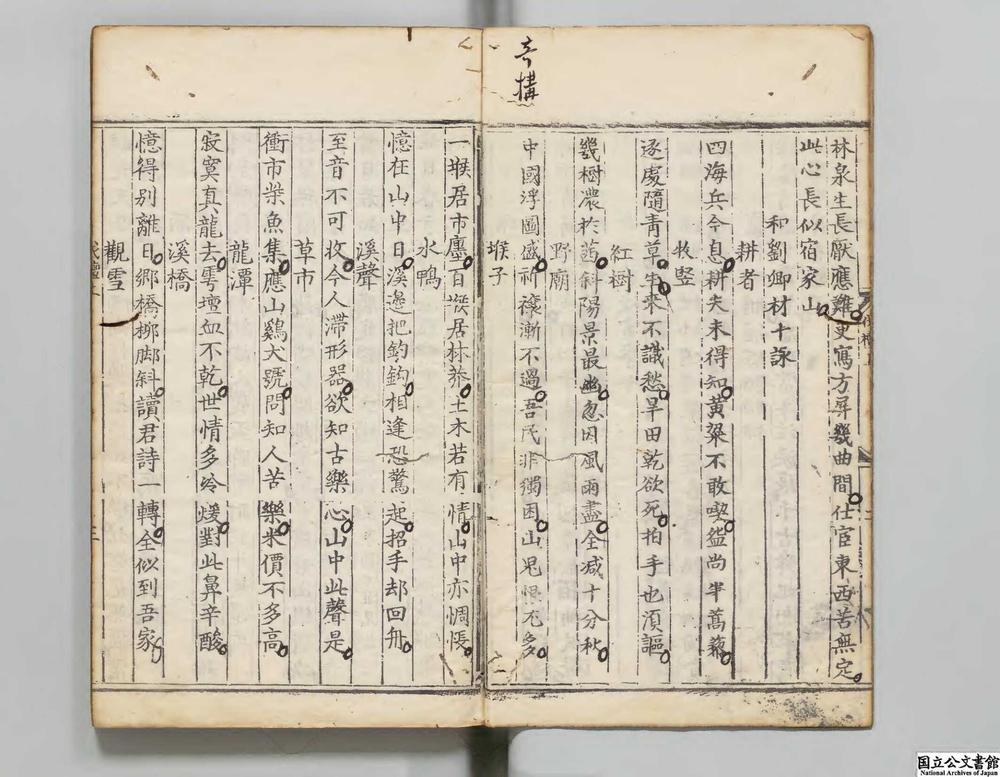 奇搆
林泉生長厭應難更寫方屏幾曲間仕宦東西苦無定
此心長似宿家山
和劉卿材十詠
耕者
四海兵今息耕夫未得知黃粱不敢喫盤尚半蒿藜
牧豎
逐處隨青草牛來不識愁旱田乾欲死拍手也須謳
紅樹
幾樹濃於茜斜陽景最幽忽因風雨盡全减十分秋
野廟
中國浮圖盛祈禳漸不過吾民非獨困山鬼恨尤多
堠子
一堠居市廛百堠居林莽土木若有情山中亦惆悵
水鴨
憶在山中日溪邊把釣鈎相逢恐驚起招手却回舟
溪聲
至音不可收今人滯形器欲知古樂心山中此聲是
草市
衝市柴魚集應山鷄犬號問知人苦樂米價不多高
龍潭
寂寞真龍去雩壇血不乾世情多冷煖對此鼻辛酸
溪橋
憶得別離日鄉橋柳脚斜讀君詩一轉全似到吾家
觀雪
国立公文書館
National Archives of Japan